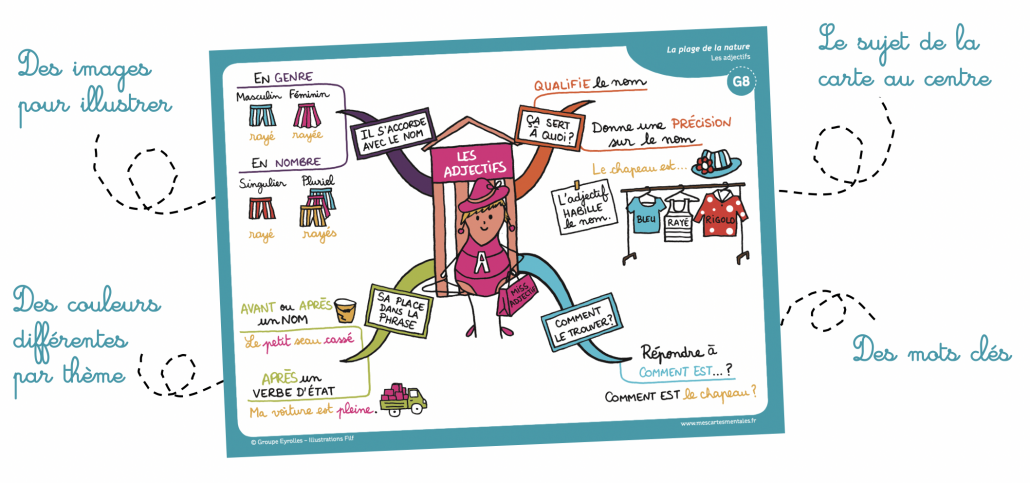 Des images
pour illustrer
Le sujet de la
carte au centre
Des couleurs
différentes
par thème
Des mots clés
La plage de la nature
Les adjectifs
G8
LES
ADJECTIFS
A
MISS
ADJECTIF
IL S'ACCORDE
AVEC LE NOM
EN GENRE
Masculin Féminin
rayé rayée
EN NOMBRE
Singulier Pluriel
rayé rayés
ÇA SERT
À QUOI?
QUALIFIE le nom
Donne une PRÉCISION
sur le nom
Le chapeau est...
L'adjectif
HABILLE
le nom.
BLEU
RAYÉ
RIGOLO
SA PLACE
DANS LA
PHRASE
AVANT ou APRÈS
un NOM
Le petit seau cassé
APRÈS un
VERBE D'ÉTAT
Ma voiture est pleine.
COMMENT
LE TROUVER?
Répondre à
COMMENT EST...?
COMMENT EST le chapeau?
© Groupe Eyrolles – Illustrations Filf
www.mescartesmentales.fr